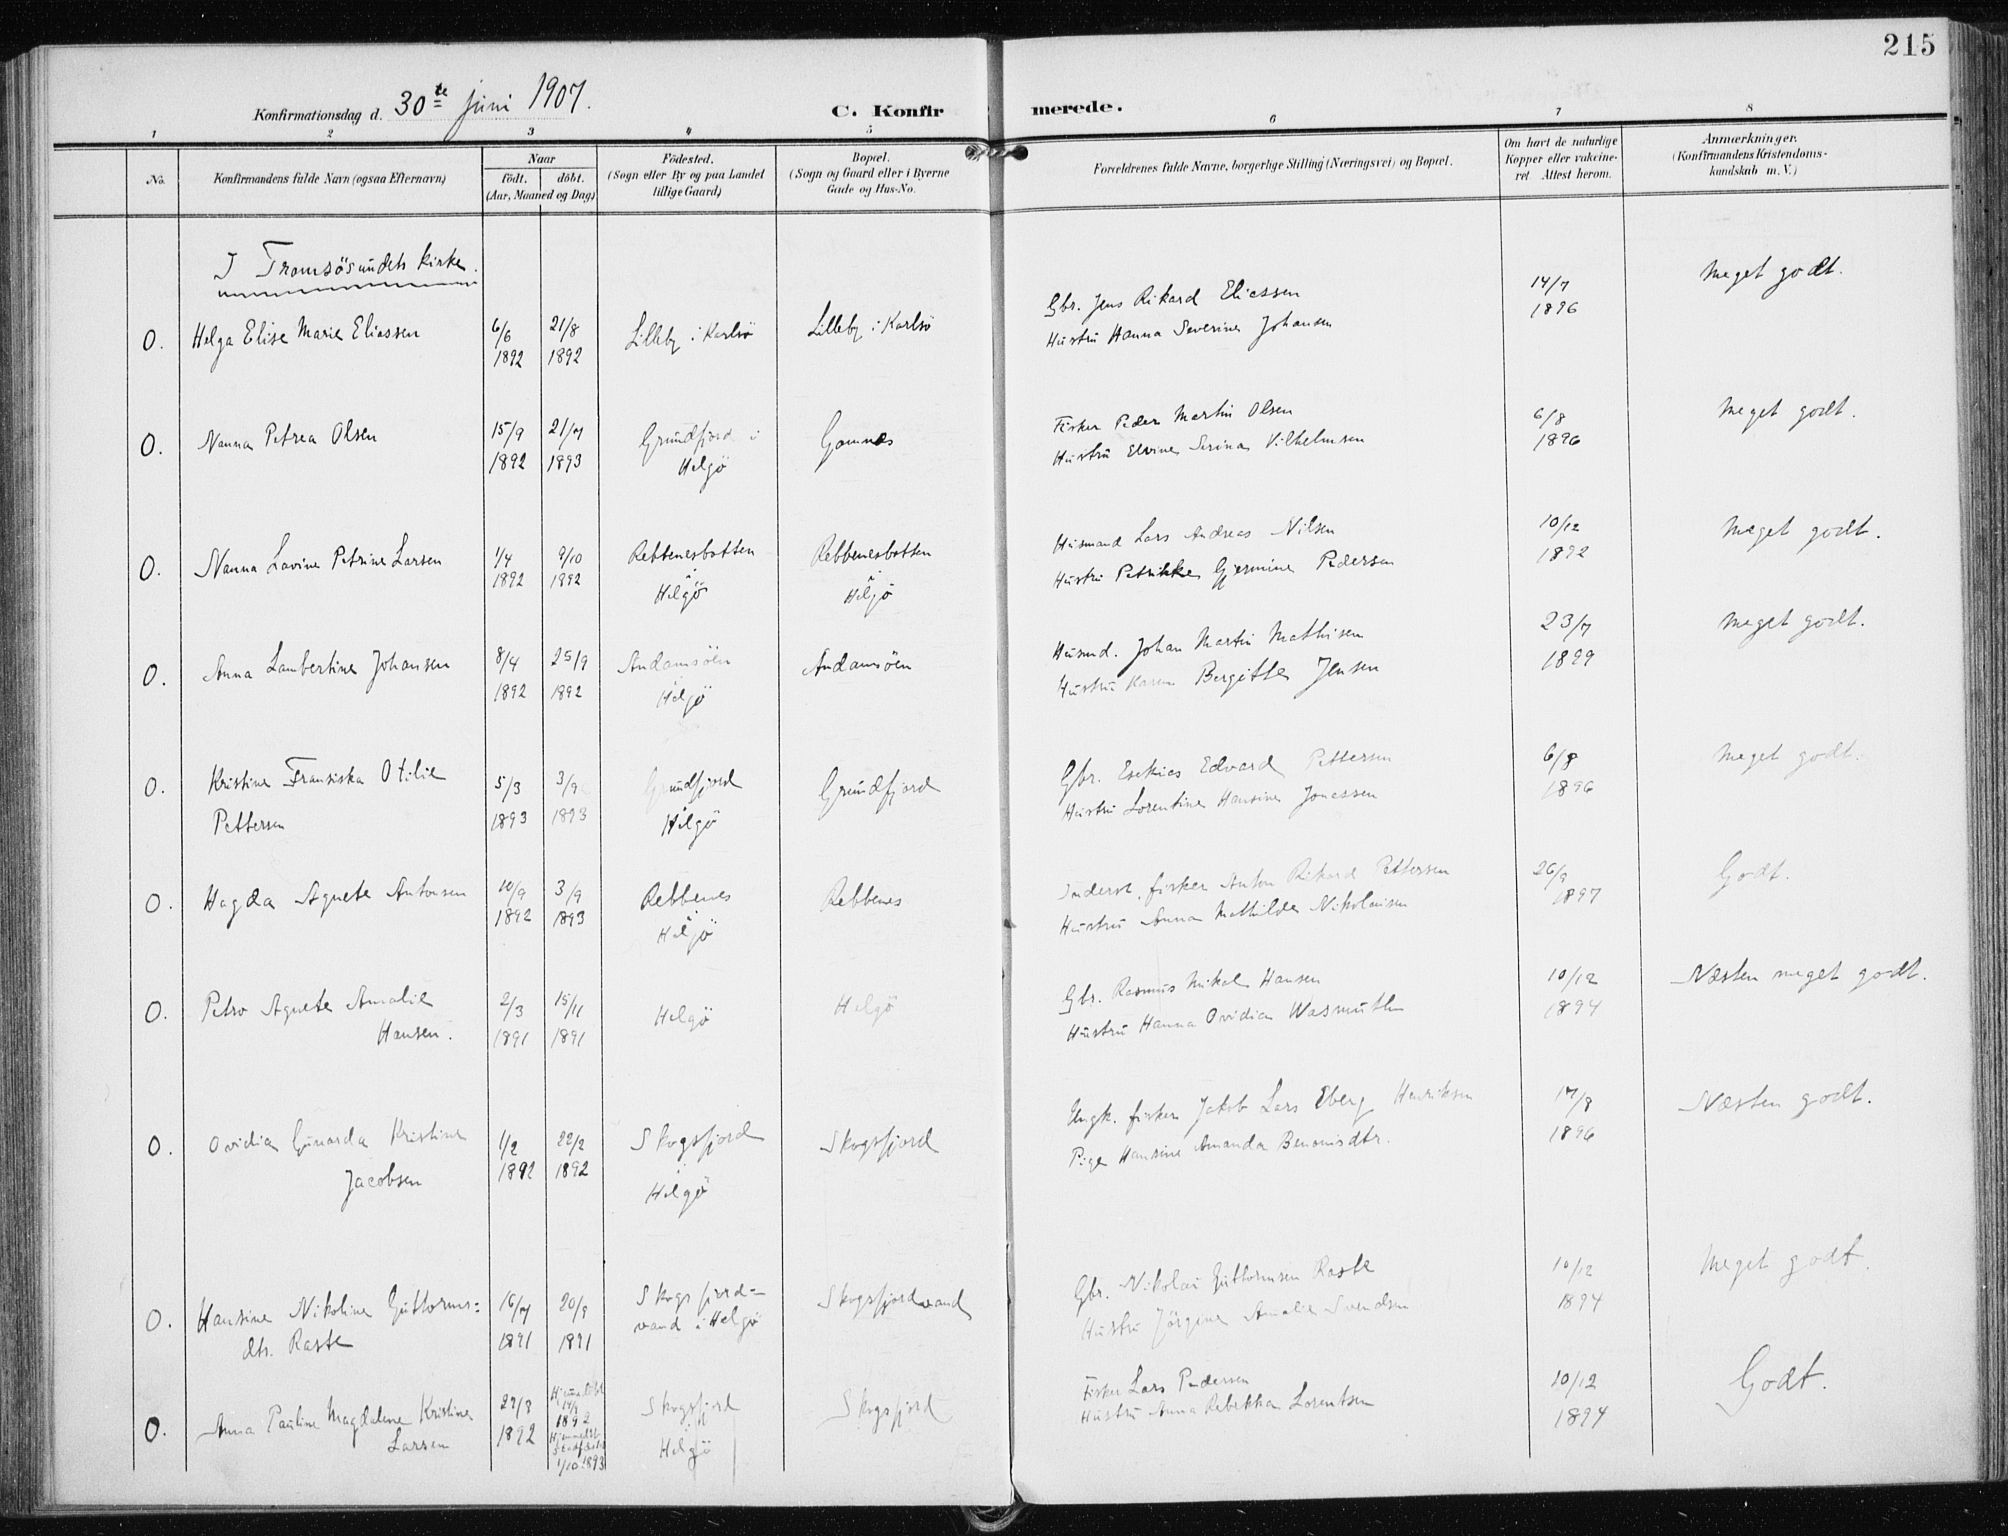 215
Konfirmationsdag d. 30te Juni 1907.
C. Konfirmerede.
1 2 3 4 5 6 7 8
No.
Konfirmandens fulde Navn (ogsaa Efternavn)
Naar
födt. döbt.
(Aar, Maaned og Dag)
Födested.
(Sogn eller By og paa Landet
tillige Gaard)
Bopæl.
(Sogn og Gaard eller i Byerne
Gade og Hus-No.
Forældrenes fulde Navne, borgerlige Stilling (Næringsvei) og Bopæl.
Om havt de naturlige
Kopper eller vakcine-
ret Attest herom.
Anmærkninger.
(Konfirmandens Kristendoms-
kundskab m. V.)
I Tromsösundets kirke.
0. Helga Elise Marie Eliassen
6/6 1892
21/8 1892
Lilleby i Karlsö
Lilleby i Karlsö
Gbr. Jens Rikard Eliassen
Hustru Hanna Severine Johansen
14/7 1896
Meget godt.
0. Nanna Petrea Olsen
15/9 1892
21/7 1893
Grundfjord i
Helgö
Gamnes
Fisker Peder Martin Olsen
Hustru Elvine Serina Vilhelmsen
6/8 1896
Meget godt.
0. Nanna Lovine Petrine Larsen
1/4 1892
9/10 1892
Rebbenesbotten
i
Helgö
Rebbenesbotten
i
Helgö
Husmand Lars Andreas Nilsen
Hustru Petrikke Gjermine Pedersen
10/12 1892
Meget godt.
0. Anna Lambertine Johansen
8/4 1892
25/9 1892
Andamsöen
i
Helgö
Andamsöen
Husmd. Johan Martin Mathisen
Hustru Karen Bergitte Jensen
23/7 1899
Meget godt.
0. Kristine Fransiska Otilie
Pettersen
5/3 1893
3/9 1893
Grundfjord
i
Helgö
Grundfjord
Gbr. Esekias Edvard Pettersen
Hustru Lorentine Hansine Jonassen
6/8 1896
Meget godt.
0. Hagda Agnete Antonsen
10/9 1892
3/9 1893
Rebbenes
i
Helgö
Rebbenes
Inderst. fisker Anton Rikard Pettersen
Hustru Anna Mathilde Nikolaisen
26/9 1897
Godt.
0. Petra Agnete Amalie
Hansen.
2/3 1891
15/11 1891
Helgö
Helgö
Gbr. Rasmus Mikal Hansen
Hustru Hanna Ovidia Wasmuth
10/12 1894
Næsten meget godt.
0. Ovidia Gunarda Kristine
Jacobsen
1/2 1892
22/2 1892
Skogsfjord
i
Helgö
Skogsfjord
Ungk. fisker Jakob Lars Eberg Henriksen
Pige Hansine Amanda Benonisdtr.
17/8 1896
Næsten godt.
0. Hansine Nikoline Guttorms-
dtr. Raste
16/7 1891
20/9 1891
Skogsfjord-
vand i Helgö
Skogsfjordvand
Gbr. Nikolai Guttormsen Raste
Hustru Jörgine Amalie Svendsen
10/12 1894
Meget godt.
0. Anna Pauline Magdalene Kristine
Larsen
27/3 1892
Hjemmedöbt
1892
Hjemmedåb
Stadfæstet
1/10 1893
Skogsfjord
i
Helgö
Skogsfjord
Fisker Lars Pedersen
Hustru Anna Rebekka Lorentsen
10/12 1894
Godt.